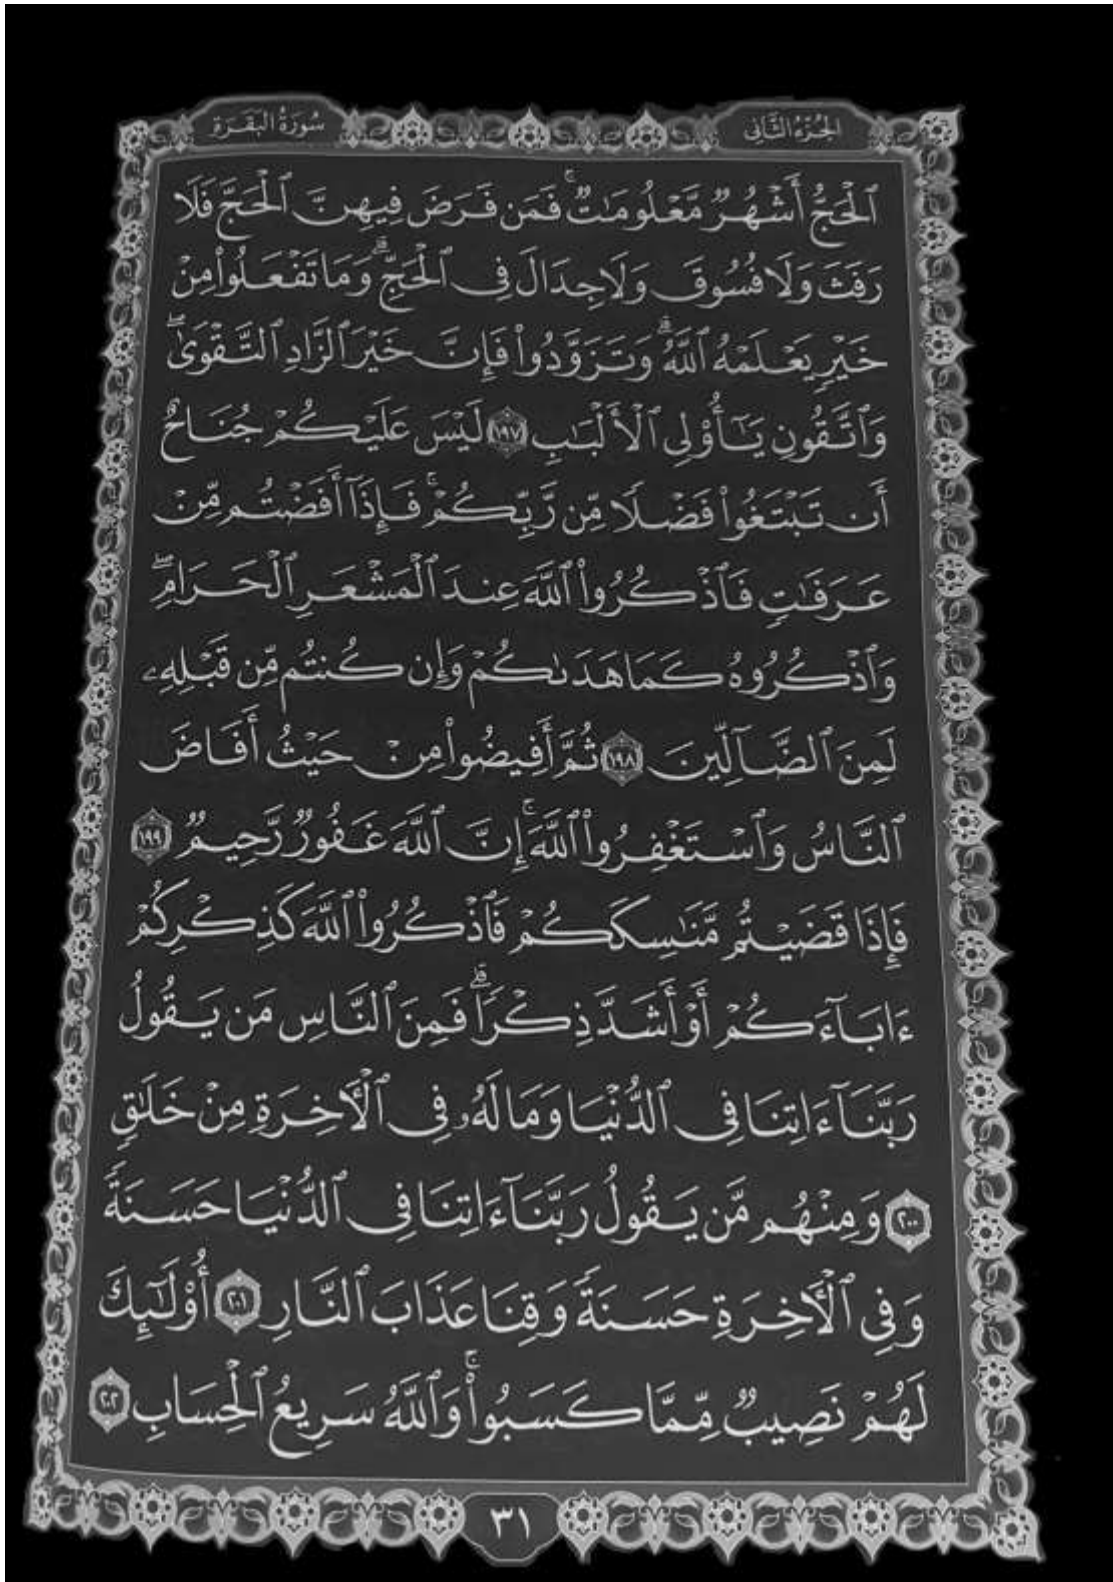 الجُزْءُ الثَّانِي
سُورَةُ البَقَرَةِ
ٱلْحَجُّ أَشْهُرٌ مَّعْلُومَـٰتٌ ۚ فَمَن فَرَضَ فِيهِنَّ ٱلْحَجَّ فَلَا
رَفَثَ وَلَا فُسُوقَ وَلَا جِدَالَ فِى ٱلْحَجِّ ۗ وَمَا تَفْعَلُوا۟ مِنْ
خَيْرٍ يَعْلَمْهُ ٱللَّهُ ۗ وَتَزَوَّدُوا۟ فَإِنَّ خَيْرَ ٱلزَّادِ ٱلتَّقْوَىٰ ۖ
وَٱتَّقُونِ يَـٰٓأُو۟لِى ٱلْأَلْبَـٰبِ ١٩٧ لَيْسَ عَلَيْكُمْ جُنَاحٌ
أَن تَبْتَغُوا۟ فَضْلًا مِّن رَّبِّكُمْ ۚ فَإِذَآ أَفَضْتُم مِّنْ
عَرَفَـٰتٍ فَٱذْكُرُوا۟ ٱللَّهَ عِندَ ٱلْمَشْعَرِ ٱلْحَرَامِ ۖ
وَٱذْكُرُوهُ كَمَا هَدَىٰكُمْ وَإِن كُنتُم مِّن قَبْلِهِۦ
لَمِنَ ٱلضَّآلِّينَ ١٩٨ ثُمَّ أَفِيضُوا۟ مِنْ حَيْثُ أَفَاضَ
ٱلنَّاسُ وَٱسْتَغْفِرُوا۟ ٱللَّهَ ۚ إِنَّ ٱللَّهَ غَفُورٌ رَّحِيمٌ ١٩٩
فَإِذَا قَضَيْتُم مَّنَـٰسِكَكُمْ فَٱذْكُرُوا۟ ٱللَّهَ كَذِكْرِكُمْ
ءَابَآءَكُمْ أَوْ أَشَدَّ ذِكْرًا ۗ فَمِنَ ٱلنَّاسِ مَن يَقُولُ
رَبَّنَآ ءَاتِنَا فِى ٱلدُّنْيَا وَمَا لَهُۥ فِى ٱلْـَٔاخِرَةِ مِنْ خَلَـٰقٍ
٢٠٠ وَمِنْهُم مَّن يَقُولُ رَبَّنَآ ءَاتِنَا فِى ٱلدُّنْيَا حَسَنَةً
وَفِى ٱلْـَٔاخِرَةِ حَسَنَةً وَقِنَا عَذَابَ ٱلنَّارِ ٢٠١ أُو۟لَـٰٓئِكَ
لَهُمْ نَصِيبٌ مِّمَّا كَسَبُوا۟ ۚ وَٱللَّهُ سَرِيعُ ٱلْحِسَابِ ٢٠٢
٣١